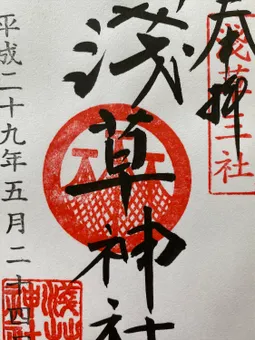 奉拝
淺草三社
淺草神社
平成二十九年五月二十四日
淺草
神社